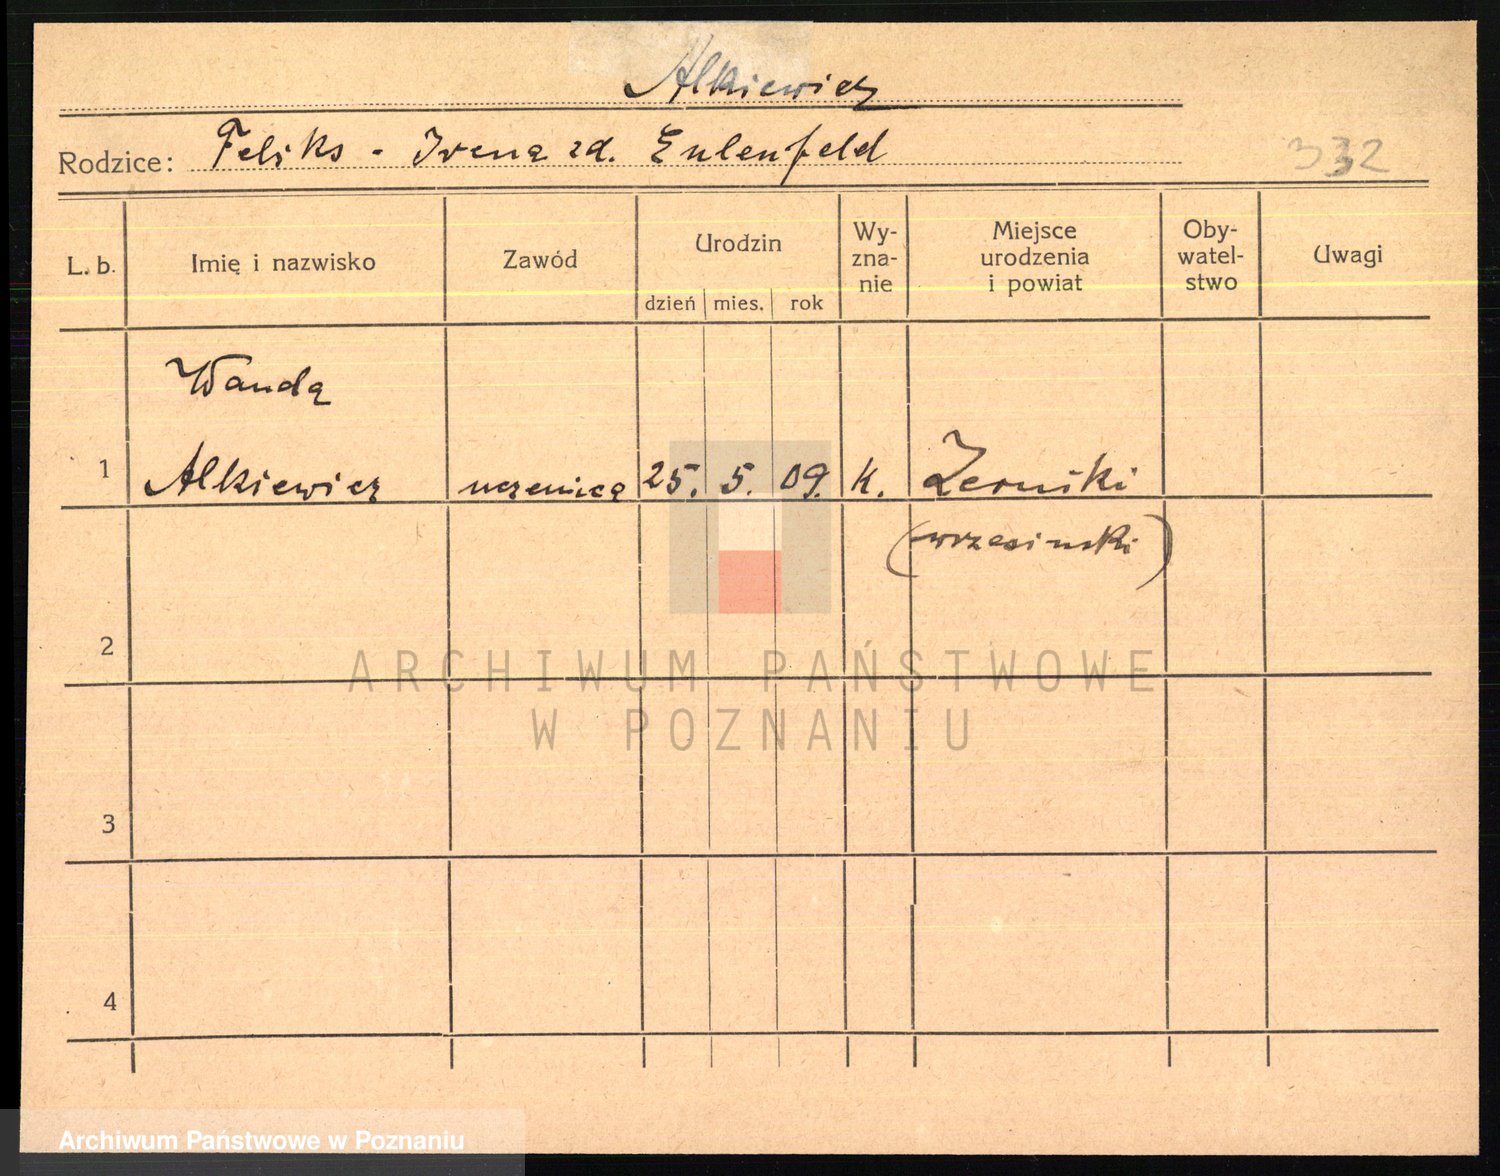 Alkiewicz
Rodzice: Feliks - Irena zd. Eulenfeld
332
L. b.
Imię i nazwisko
Zawód
Urodzin
dzień mies. rok
Wy-
zna-
nie
Miejsce
urodzenia
i powiat
Oby-
watel-
stwo
Uwagi
Wanda
1 Alkiewicz uczenica 25. 5. 09. k. Zerniki
(wrzesinski)
2
ARCHIWUM PAŃSTWOWE
W POZNANIU
3
4
Archiwum Państwowe w Poznaniu